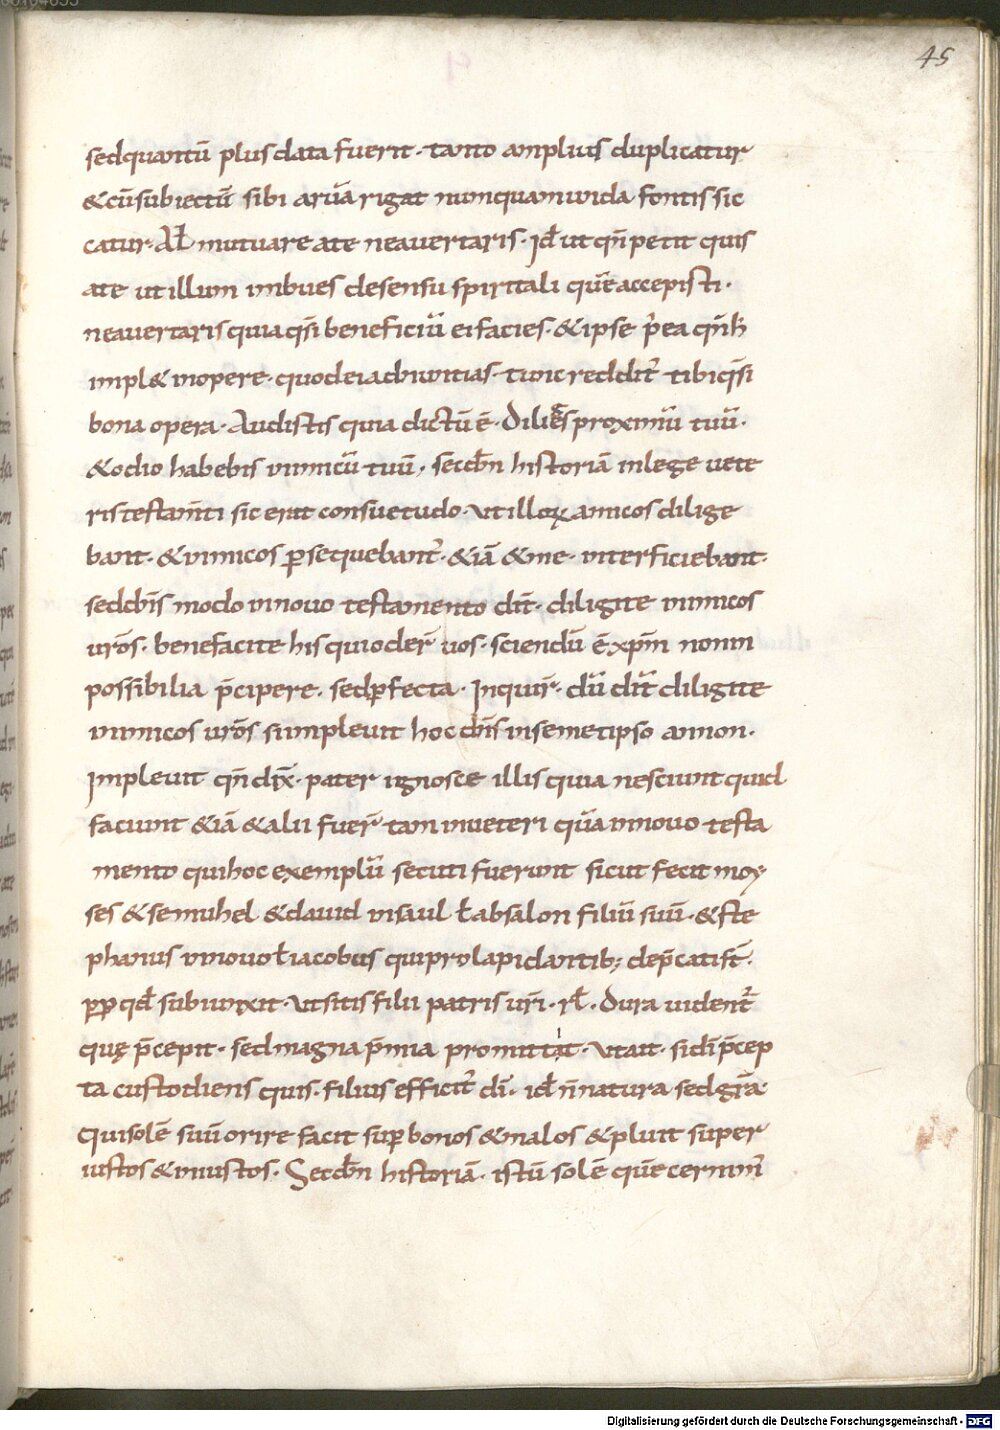 45
sedquantū plusdata fuerit · tanto amplius duplicatur
&cūsubiectū sibi arua rigat nunquam uuida fontis sic
catur · Al̄ mutuare ate neauertaris · id̄ ut qn̄ petit quis
ate ut illum imbues desensu spiritali quē accepisti ·
neauertaris quia qs̄i beneficiū ei facies · &ipse p̄ ea qn̄
impl& inopere · quodeiadiuuitias · tunc reddit̄ tibi qs̄i
bona opera · Audistis quia dictū ē · Diliges proximū tuū ·
&odio habebis inimicū tuū · secdn̄ historiā inlege uete
ris testam̄ti sic erat consuetudo · ut illorum amicos dilige
bant · &inimicos psequebant̄ · &iā &me · interficiebant ·
seddn̄s modo innouo testamento dit̄ · diligite inimicos
ur̄os · benefacite his quioder̄ uos · sciendū ē xpm̄ nonin
possibilia p̄cipere · sed pfecta · Inquir̄ · dū dit̄ diligite
inimicos ur̄os si impleuit hoc dn̄s insemetipso annon ·
impleuit qn̄ dix̄ · pater ignosce illis quia nesciunt quid
faciunt &iā &alii fuer̄ tam inueteri quā innouo testa
mento quihoc exemplū secuti fuerunt sicut fecit moy
ses &semuhel &dauid insaul ł absalon filiū suū · &ste
phanus innouo ł iacobus quiprolapidantib; dep̄catist̄ ·
pp qd̄ subiunxit · ut sitis filii patris ur̄i · rł · Dura uident̄
quę p̄cepit · sed magna p̄mia promittit · utait · sidī p̄cep
ta custodiens quis · filius efficit̄ dī · id̄ n̄natura sed gr̄a ·
quisolē suū orire facit sup bonos &malos &pluit super
iustos &iniustos · Secdn̄ historiā · istū solē quē cernim̄
Digitalisierung gefördert durch die Deutsche Forschungsgemeinschaft - DFG